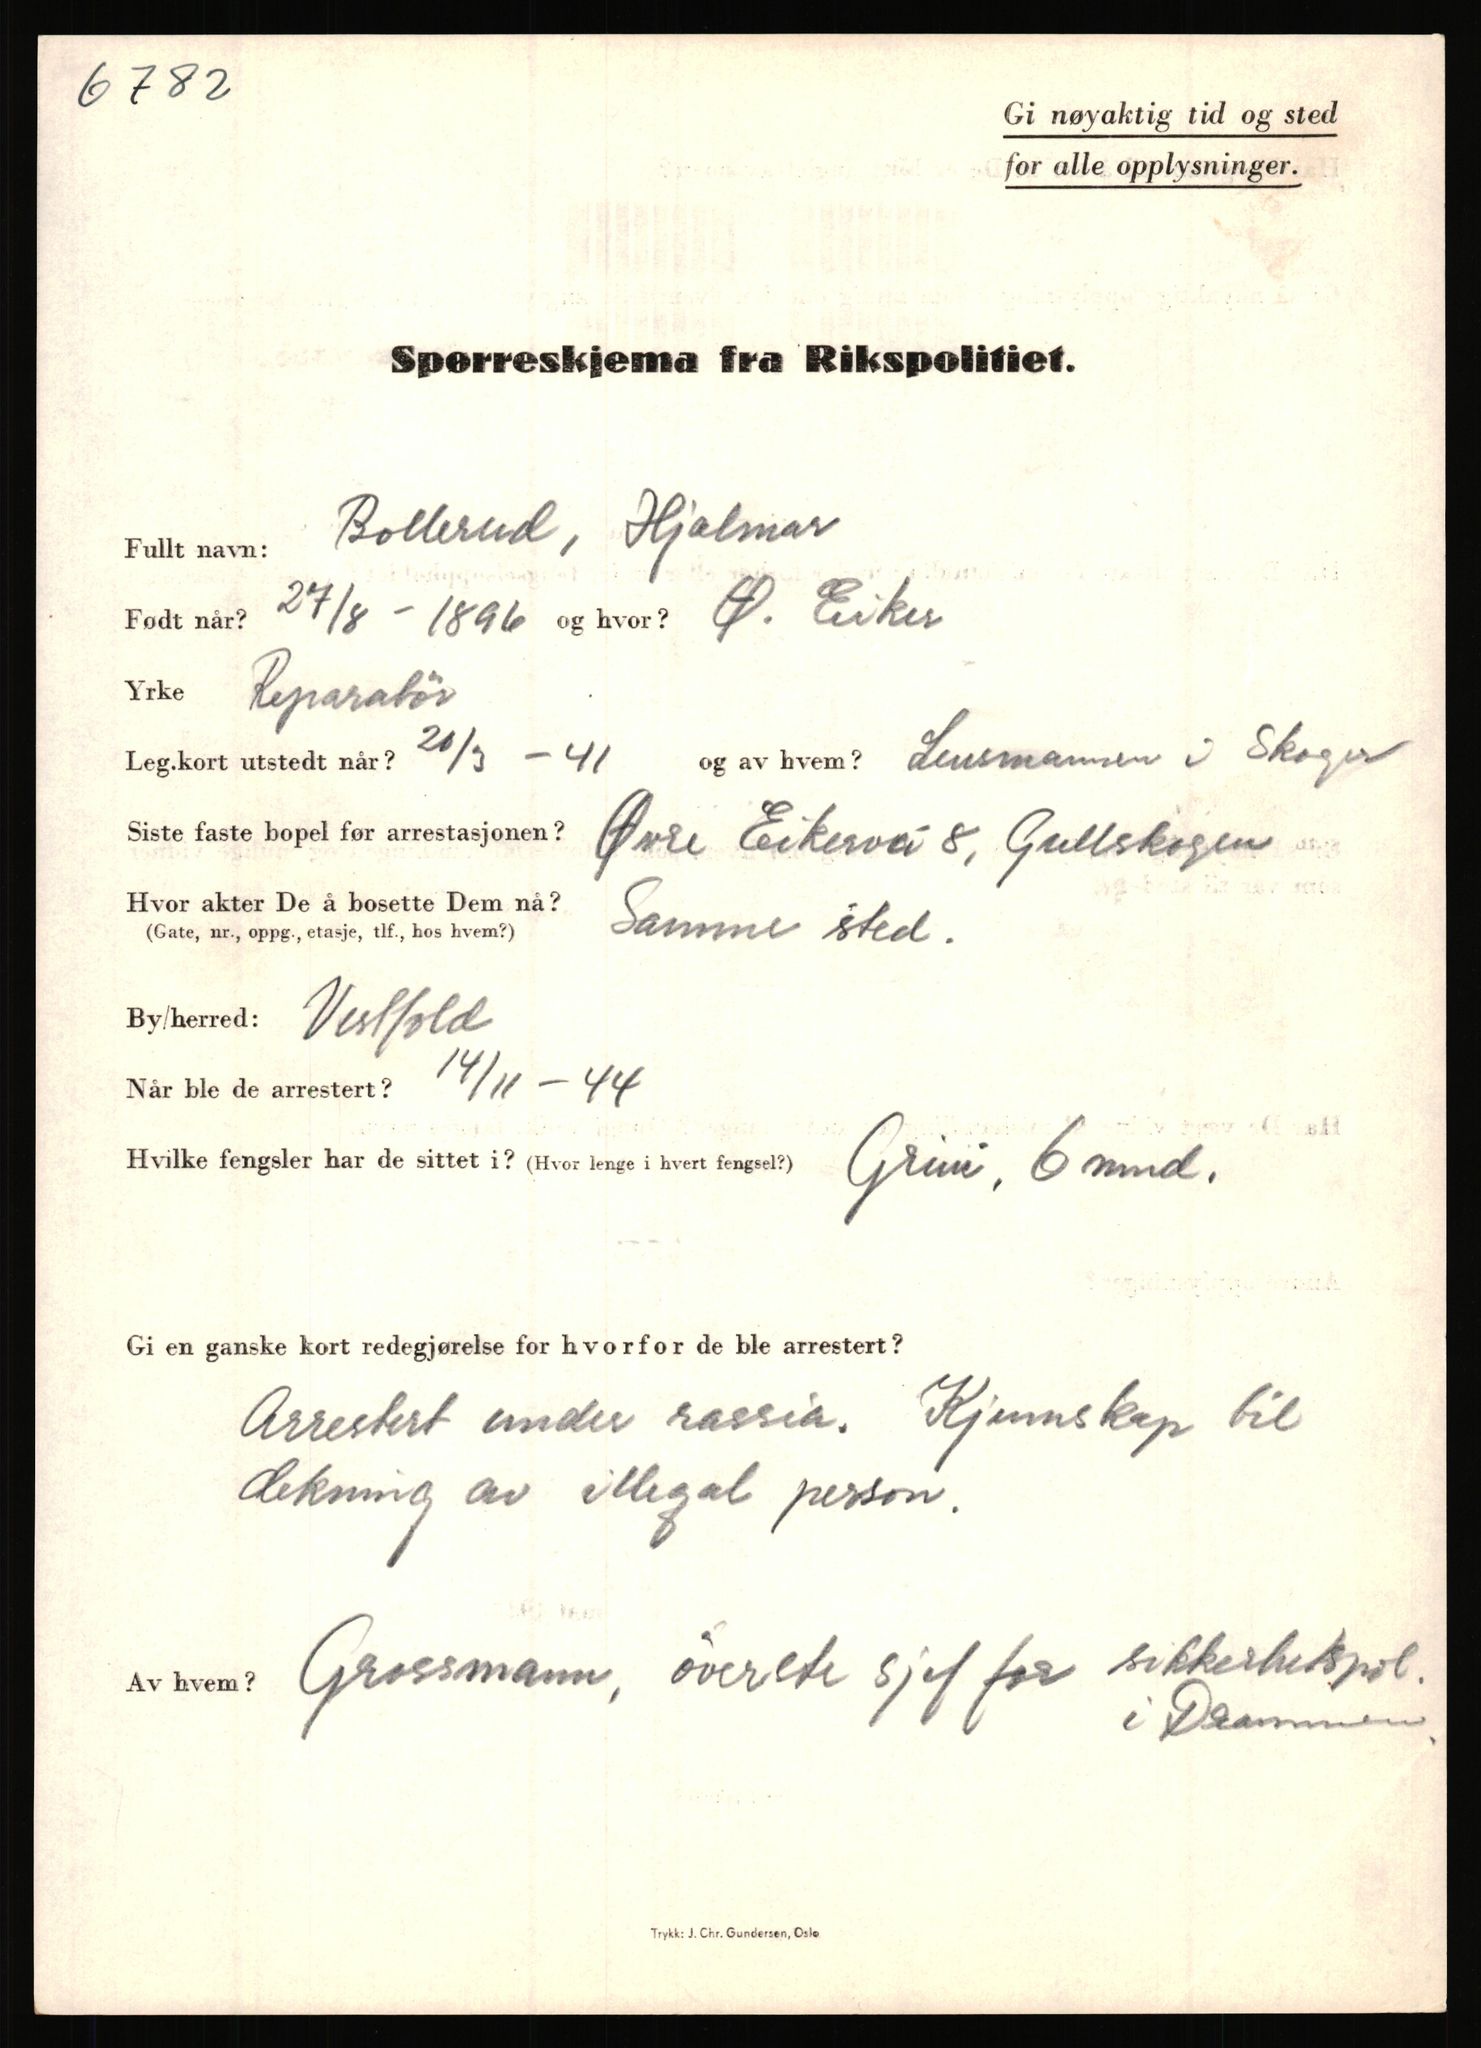 6782
Gi nøyaktig tid og sted
for alle opplysninger.
Spørreskjema fra Rikspolitiet.
Fullt navn: Bollerud, Hjalmar
Født når? 27/8 - 1896 og hvor? Ø. Eiker
Yrke Reparatör
Leg.kort utstedt når? 20/3 - 41 og av hvem? Lensmannen i Skoger
Siste faste bopel før arrestasjonen? Øvre Eikervei 8, Gullskogen
Hvor akter De å bosette Dem nå? Samme sted.
(Gate, nr., oppg., etasje, tlf., hos hvem?)
By/herred: Vestfold
Når ble de arrestert? 14/11 - 44
Hvilke fengsler har de sittet i? (Hvor lenge i hvert fengsel?) Grini, 6 mnd.
Gi en ganske kort redegjørelse for hvorfor de ble arrestert?
Arrestert under rassia. Kjennskap til
dekning av illegal person.
Av hvem? Grossmann, överste sjef for sikkerhetspol.
i Drammen.
Trykk: J. Chr. Gundersen, Oslo